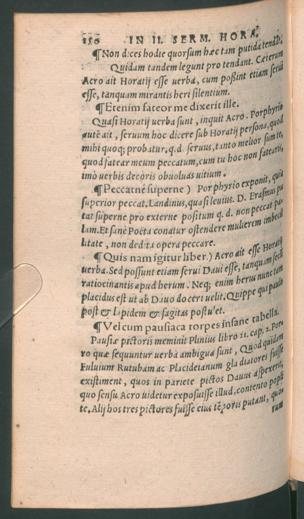 150 IN II. SERM. HORA.
¶Non dices hodie quorsum hæc tam putida tendāt.
Quidam tandem legunt pro tendant. Cæterum
Acro ait Horatij esse uerba, cum possint etiam serui
esse, tanquam mirantis heri silentium.
¶Etenim fateor me dixerit ille.
Quasi Horatij uerba sunt, inquit Acro. Porphyrio
autē ait, seruum hoc dicere sub Horatij persona, quod
mihi quoq; probatur, q.d. seruus, tanto melior sum te,
quod fatear meum peccatum, cum tu hoc non fatearis,
imò uerbis decoris obuoluas uitium.
¶Peccatne superne) Porphyrio exponit, quid
superior peccat, Landinus, quasi leuius. D. Erasmus pu
tat superne pro externe positum q.d. non peccat pa-
lam. Et sanè Poëta conatur ostendere mulierem imbecil
litate, non dedita opera peccare.
¶Quis nam igitur liber.) Acro ait esse Horatij
uerba. Sed possunt etiam serui Daui esse, tanquam secū
ratiocinantis apud herum. Neq; enim herus nunc tam
placidus est ut ab Dauo doceri uelit. Quippe qui paulo
post & lapidem & sagitas postulet.
¶Vel cum pausiaca torpes insane tabella.
Pausiæ pictoris meminit Plinius libro 11. cap. 2. Por
ro quæ sequuntur uerba ambigua sunt, Quod quidam
Fuluium Rutubam ac Placideianum gladiatores fuisse
existiment, quos in pariete pictos Dauus aspexerit,
quo sensu Acro uidetur exposuisse illud, contento popli
te, Alij hos tres pictores fuisse eius tēporis putant, quo
rum